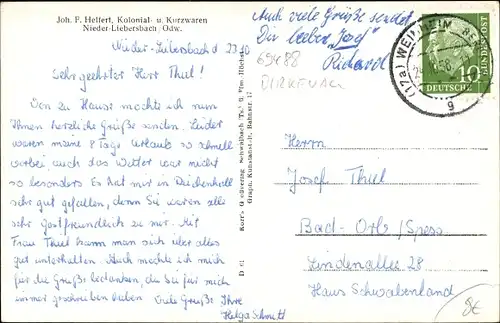 Joh. F. Helfert, Kolonial- u. Kurzwaren
Nieder-Liebersbach / Odw.
Nieder-Liebersbach d 23.10
Sehr geehrter Herr Thul!
Von zu Hause möchte ich nun
Ihnen herzliche Grüße senden. Leider
waren meine 8 Tage Urlaub so schnell
vorbei, auch das Wetter war nicht
so besonders. Es hat mir in Reichenhall
sehr gut gefallen, denn Sie waren alle
sehr Gastfreundlich zu mir. Mit
Frau Thul kann man sich über alles
gut unterhalten. Auch möchte ich mich
für die Grüße bedanken, die Sie für mich
immer geschrieben haben. Viele Grüße Ihre
Helga Schmitt
Auch viele Grüße sendet
Dir lieber „Josef"
Richard
69488
BIRKENAU
(17a) WEINHEIM
g
10
DEUTSCHE
BUNDESPOST
Herrn
Josef Thul
Bad-Orb/Spess.
Lindenallee 28
Haus Schwabenland
Graph. Kunstanstalt, Bahnstr. 17
D 61
8€